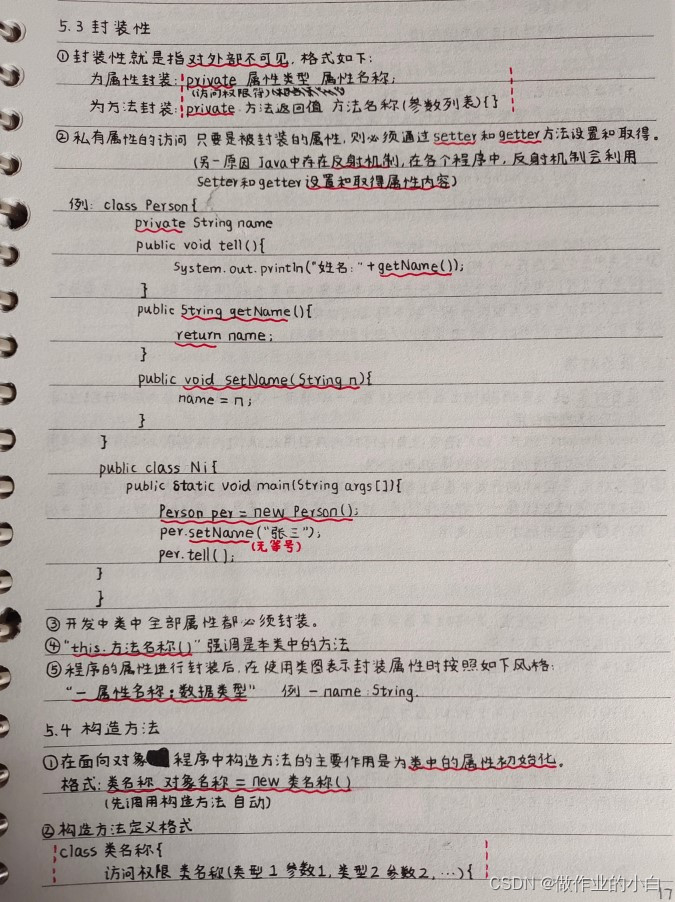 5.3 封装性
①封装性就是指对外部不可见,格式如下:
为属性封装:private 属性类型 属性名称;
(访问权限符)
为方法封装:private 方法返回值 方法名称(参数列表){}
②私有属性的访问 只要是被封装的属性,则必须通过setter和getter方法设置和取得。
(另一原因 Java中存在反射机制,在各个程序中,反射机制会利用
Setter和getter设置和取得属性内容)
例: class Person{
private String name
public void tell(){
System.out.println("姓名:"+getName());
}
public String getName(){
return name;
}
public void setName(String n){
name = n;
}
}
public class Ni{
public static void main(String args[]){
Person per = new Person();
per.setName("张三");
(无等号)
per.tell();
}
}
③开发中类中全部属性都必须封装。
④"this.方法名称()"强调是本类中的方法
⑤程序的属性进行封装后,在使用类图表示封装属性时按照如下风格:
"- 属性名称:数据类型" 例 -name:String.
5.4 构造方法
①在面向对象程序中构造方法的主要作用是为类中的属性初始化。
格式:类名称 对象名称 = new 类名称()
(先调用构造方法 自动)
②构造方法定义格式
class 类名称{
访问权限 类名称(类型1 参数1,类型2 参数2,…){
CSDN @做作业的小白
17